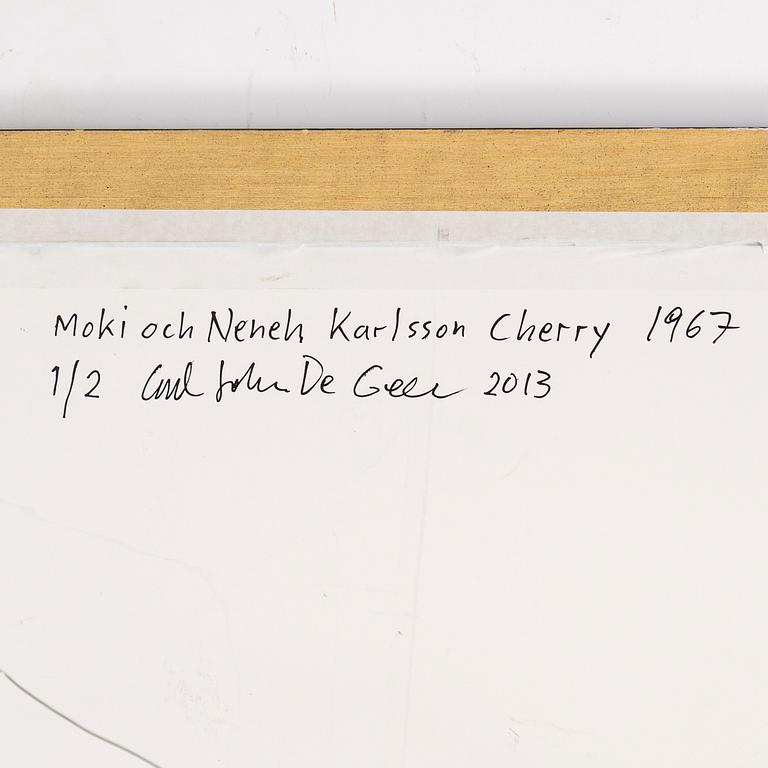 Moki och Neneh Karlsson Cherry 1967
1/2 Carl Johan De Geer 2013